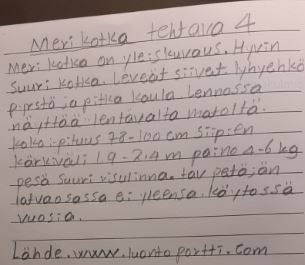 Meri kotka tehtava 4
Meri kotka on yleiskuvaus. Hyvin
suuri kotka. Leveät siivet lyhyehkö
pyrstö ja pitkä kaula Lennossa
näyttää lentävältä matolta.
koko: pituus 78-100 cm siipien
kärkiväli 1,9-2,4 m paino 4-6 kg
pesä suuri risulinna. tav petäjän
latvaosassa ei yleensä käytössä
vuosia.
Lähde. www.luontoportti.com